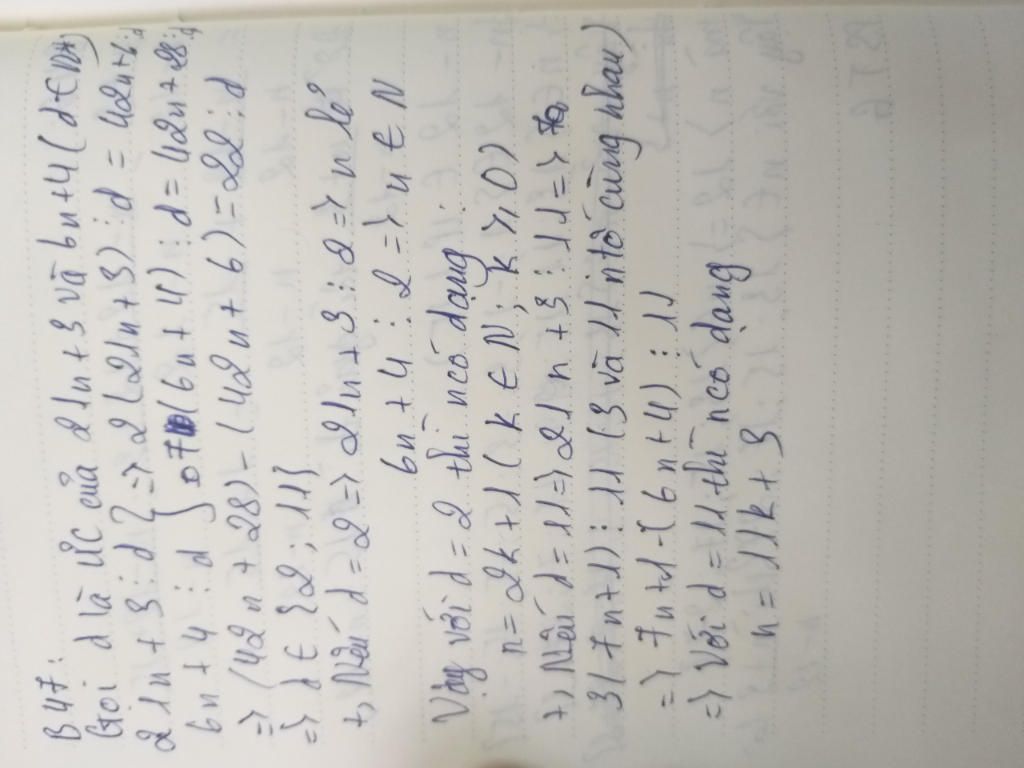 B47:
Gọi d là ƯC của 21n + 3 và 6n + 4 (d ∈ N*)
21n + 3 ⋮ d } => 2(21n + 3) ⋮ d = 42n + 6 ⋮ d
6n + 4 ⋮ d } 7(6n + 4) ⋮ d = 42n + 28 ⋮ d
=> (42n + 28) - (42n + 6) = 22 ⋮ d
=> d ∈ {2; 11}
+, Nếu d = 2 => 21n + 3 ⋮ 2 => n lẻ
6n + 4 ⋮ 2 => n ∈ N
Vậy với d = 2 thì n có dạng
n = 2k + 1 (k ∈ N; k ≥ 0)
+, Nếu d = 11 => 21n + 3 ⋮ 11 =>
3(7n + 1) ⋮ 11 (3 và 11 ntố cùng nhau)
=> 7n + 1 - (6n + 4) ⋮ 11
=> Với d = 11 thì n có dạng
n = 11k + 3